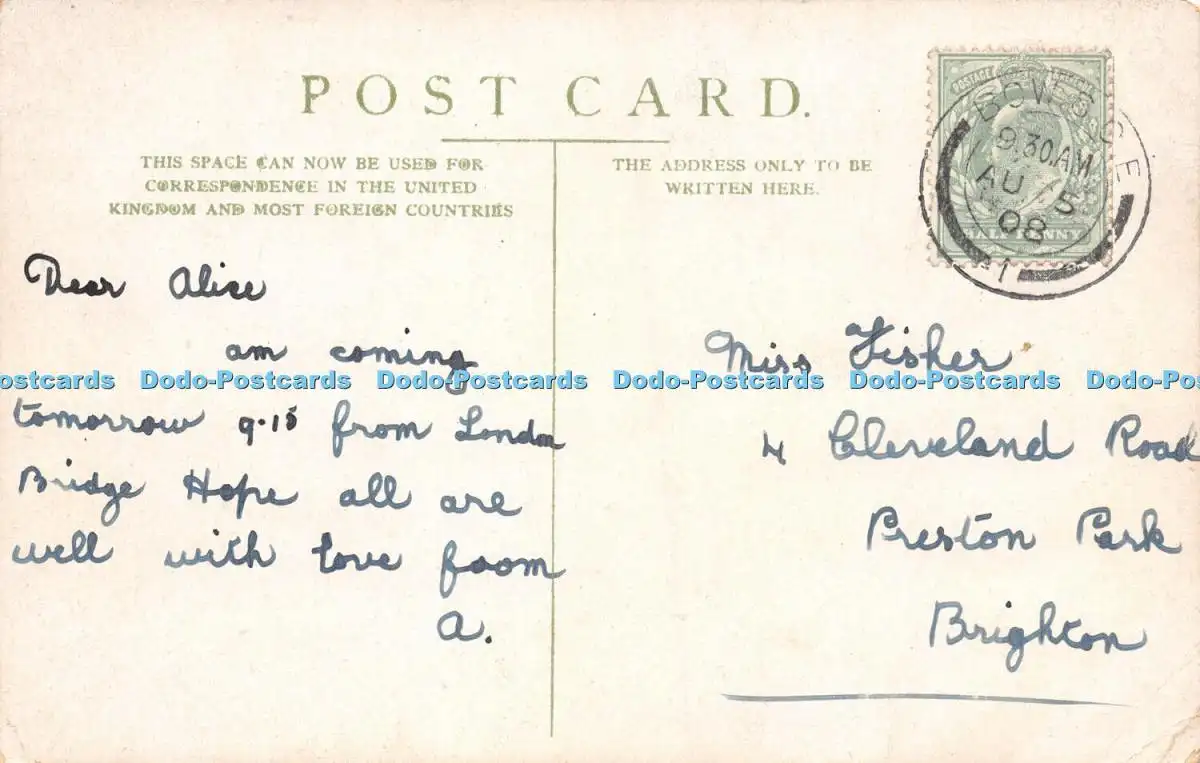 POST CARD.
THIS SPACE CAN NOW BE USED FOR
CORRESPONDENCE IN THE UNITED
KINGDOM AND MOST FOREIGN COUNTRIES
THE ADDRESS ONLY TO BE
WRITTEN HERE.
POSTAGE
HALF PENNY
9.30.AM
AU 5
08
1
Dear Alice
am coming
tomorrow 9.15 from London
Bridge Hope all are
well with love from
A.
Miss Fisher
4 Cleveland Road
Preston Park
Brighton
Dodo-Postcards Dodo-Postcards Dodo-Postcards Dodo-Postcards Dodo-Postcards Dodo-Postcards